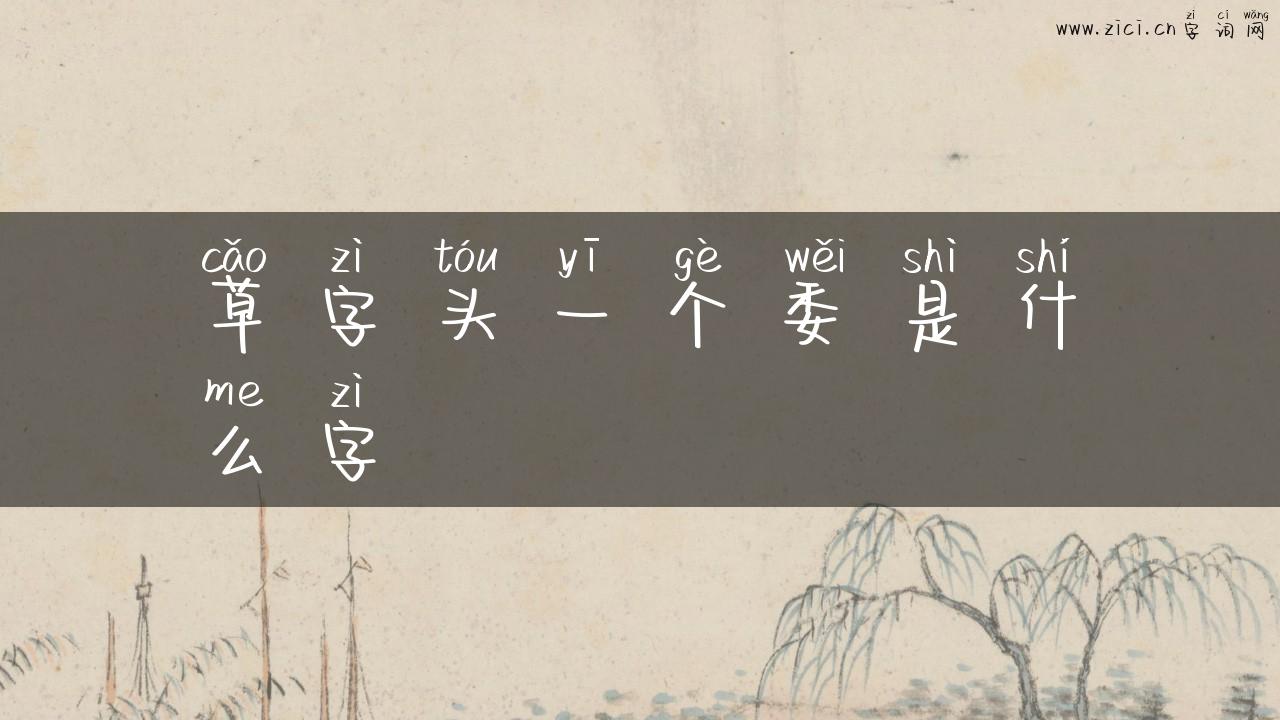 zì cí wǎng
www.zici.cn 字词网
cǎo zì tóu yī gè wěi shì shí
草字头一个委是什
me zì
么字